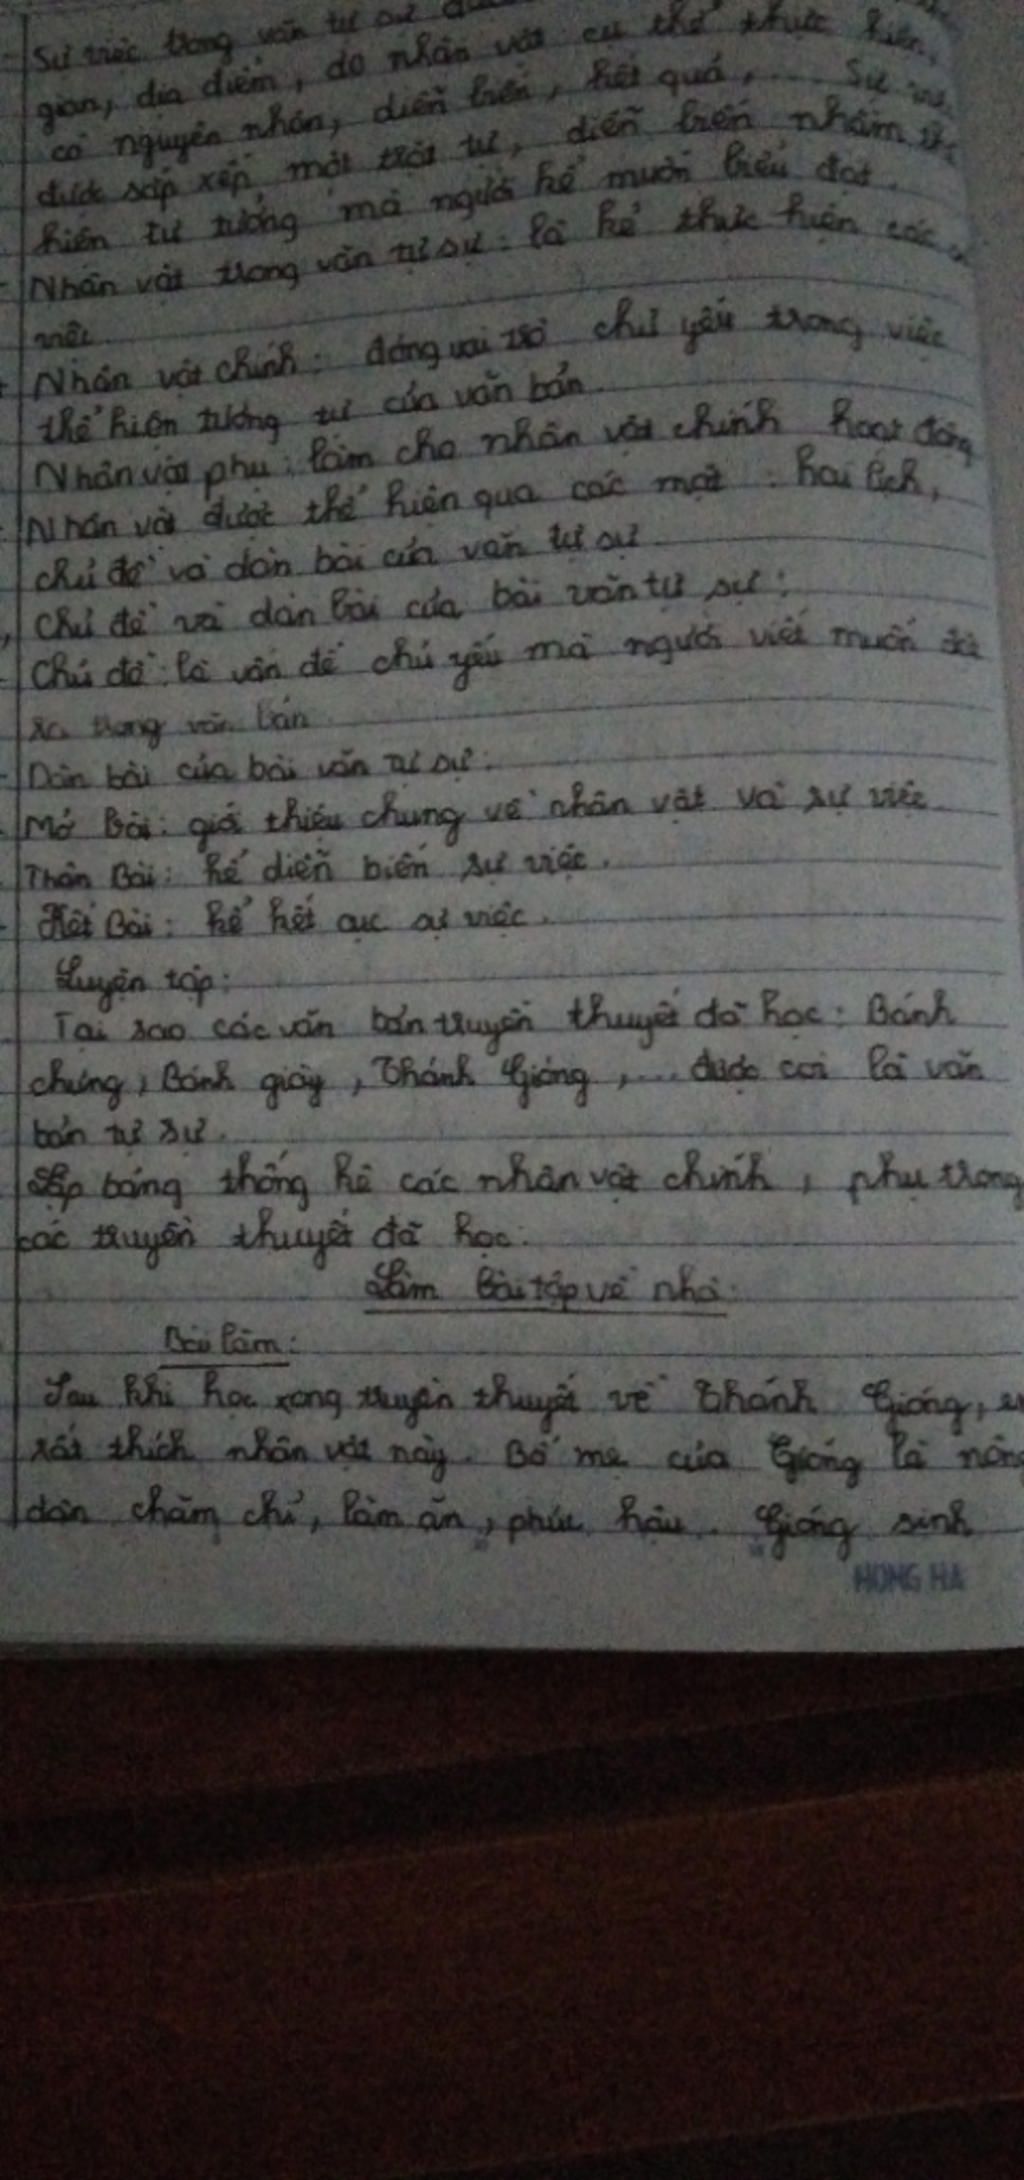 - Sự việc trong văn tự sự
gian, địa điểm, do nhân vật cụ thể thực hiện,
có nguyên nhân, diễn biến, kết quả,... Sự
được sắp xếp một trật tự, diễn biến nhằm
hiện tư tưởng mà người kể muốn biểu đạt.
- Nhân vật trong văn tự sự: là kẻ thực hiện các
việc.
+ Nhân vật chính: đóng vai trò chủ yếu trong việc
thể hiện tưởng tư của văn bản.
Nhân vật phụ: làm cho nhân vật chính hoạt động
- Nhân vật được thể hiện qua các mặt: lai lịch,
chủ đề và dàn bài của văn tự sự.
, Chủ đề và dàn bài của bài văn tự sự:
- Chủ đề: là vấn đề chủ yếu mà người viết muốn
ra trong văn bản.
- Dàn bài của bài văn tự sự:
- Mở Bài: giới thiệu chung về nhân vật và sự việc.
- Thân Bài: kể diễn biến sự việc.
- Kết Bài: kể kết cục sự việc.
Luyện tập:
Tại sao các văn bản truyền thuyết đã học: Bánh
chưng, Bánh giầy, Thánh Gióng,... được coi là văn
bản tự sự.
Lập bảng thống kê các nhân vật chính, phụ trong
các truyền thuyết đã học:
Làm bài tập về nhà:
Bài làm:
Sau khi học xong truyền thuyết về Thánh Gióng,
rất thích nhân vật này. Bố mẹ của Gióng là nông
dân chăm chỉ, làm ăn, phúc hậu. Gióng sinh
HONG HA